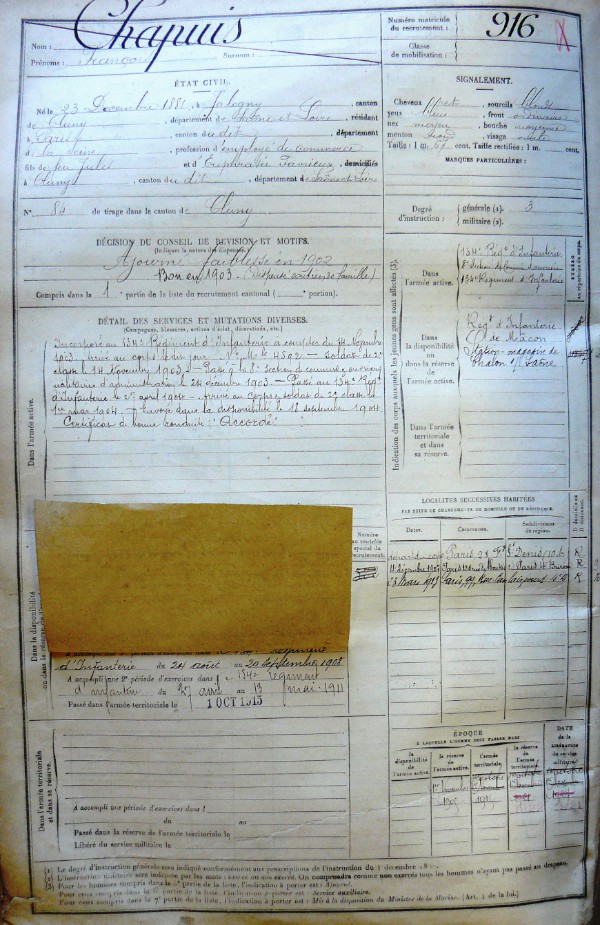 Nom : Chapuis
Prénoms : François Surnom :
Numéro matricule du recrutement : 916
Classe de mobilisation :
ÉTAT CIVIL.
Né le 23 Décembre 1881, à Jalogny, canton
de Cluny, département de Saône et Loire, résidant
à Paris, canton de dit, département
de la Seine, profession d'employé de commerce
fils de feu Jules et d'Euphrasie, domiciliés
à Cluny, canton de dit, département de Saône et Loire
N° 84 de tirage dans le canton de Cluny
SIGNALEMENT.
Cheveux sourcils blonds
yeux bleus, front ordinaire
nez moyen, bouche moyenne
menton rond, visage ovale
Taille : 1 m. cent. Taille rectifiée : 1 m. cent.
MARQUES PARTICULIÈRES :
Degré d'instruction : générale (1). 3
militaire (2).
DÉCISION DU CONSEIL DE RÉVISION ET MOTIFS.
(Indiquer la nature des dispenses.)
Ajourné faiblesse en 1902
Bon en 1903. (dispensé soutien de famille)
Compris dans la 1 partie de la liste du recrutement cantonal ( portion).
DÉTAIL DES SERVICES ET MUTATIONS DIVERSES.
(Campagnes, blessures, actions d'éclat, décorations, etc.)
Incorporé au 134e Régiment d'Infanterie à compter du 14 Novembre
1903, arrivé au corps le dit jour. N° Mle 4592. — soldat de 2e
classe le 14 Novembre 1903. — Passé à la 8e Section de commis et ouvriers
militaires d'administration le 24 décembre 1903. — Passé au 134e Régt
d'Infanterie le avril 1904 — arrivé au corps et soldat de 2e classe le
1904. — Envoyé dans la disponibilité le 18 septembre 1904.
Certificat de bonne conduite "Accordé"
Dans l'armée active.
Indication des corps auxquels les jeunes gens sont affectés (3).
Dans l'armée active.
134e Régt d'Infanterie
8e Section de Commis et ouvriers
134e Régiment d'Infanterie
Dans la disponibilité ou dans la réserve de l'armée active.
Régt d'Infanterie
de Macon
Station-magasin de
Chalon s/ Saône
Dans l'armée territoriale et dans sa réserve.
LOCALITÉS SUCCESSIVES HABITÉES
PAR SUITE DE CHANGEMENTS DE DOMICILE OU DE RÉSIDENCE.
Dates. Communes. Subdivisions de région. D domicile R résidence.
Paris 28 Fg St Denis, 10e R
Paris R
Mars Paris, 99, Rue R
Numéro au contrôle spécial du recrutement.
Dans la disponibilité ou dans la réserve
Régiment
d'Infanterie du 24 août au 20 septembre 1908
A accompli une 2e période d'exercices dans le 134e Régiment
d'Infanterie du 27 avril au 13 mai 1911
Passé dans l'armée territoriale le 1 OCT 1915
Dans l'armée territoriale et dans sa réserve.
A accompli une période d'exercices dans l
du au
Passé dans la réserve de l'armée territoriale le
Libéré du service militaire le
ÉPOQUE
À LAQUELLE L'HOMME DOIT PASSER DANS
la disponibilité de l'armée active. la réserve de l'armée active. l'armée territoriale. la réserve de l'armée territoriale.
DATE de la LIBÉRATION du service militaire.
(1) Le degré d'instruction générale sera indiqué conformément aux prescriptions de l'instruction du décembre
(3) Pour les hommes compris dans la partie de la liste, l'indication à porter est : Ajourné.
Pour ceux compris dans la partie de la liste, l'indication à porter est : Service auxiliaire.
Pour ceux compris dans la 7e partie de la liste, l'indication à porter est : Mis à la disposition du Ministre de la Marine. (Art. 4 de la loi.)